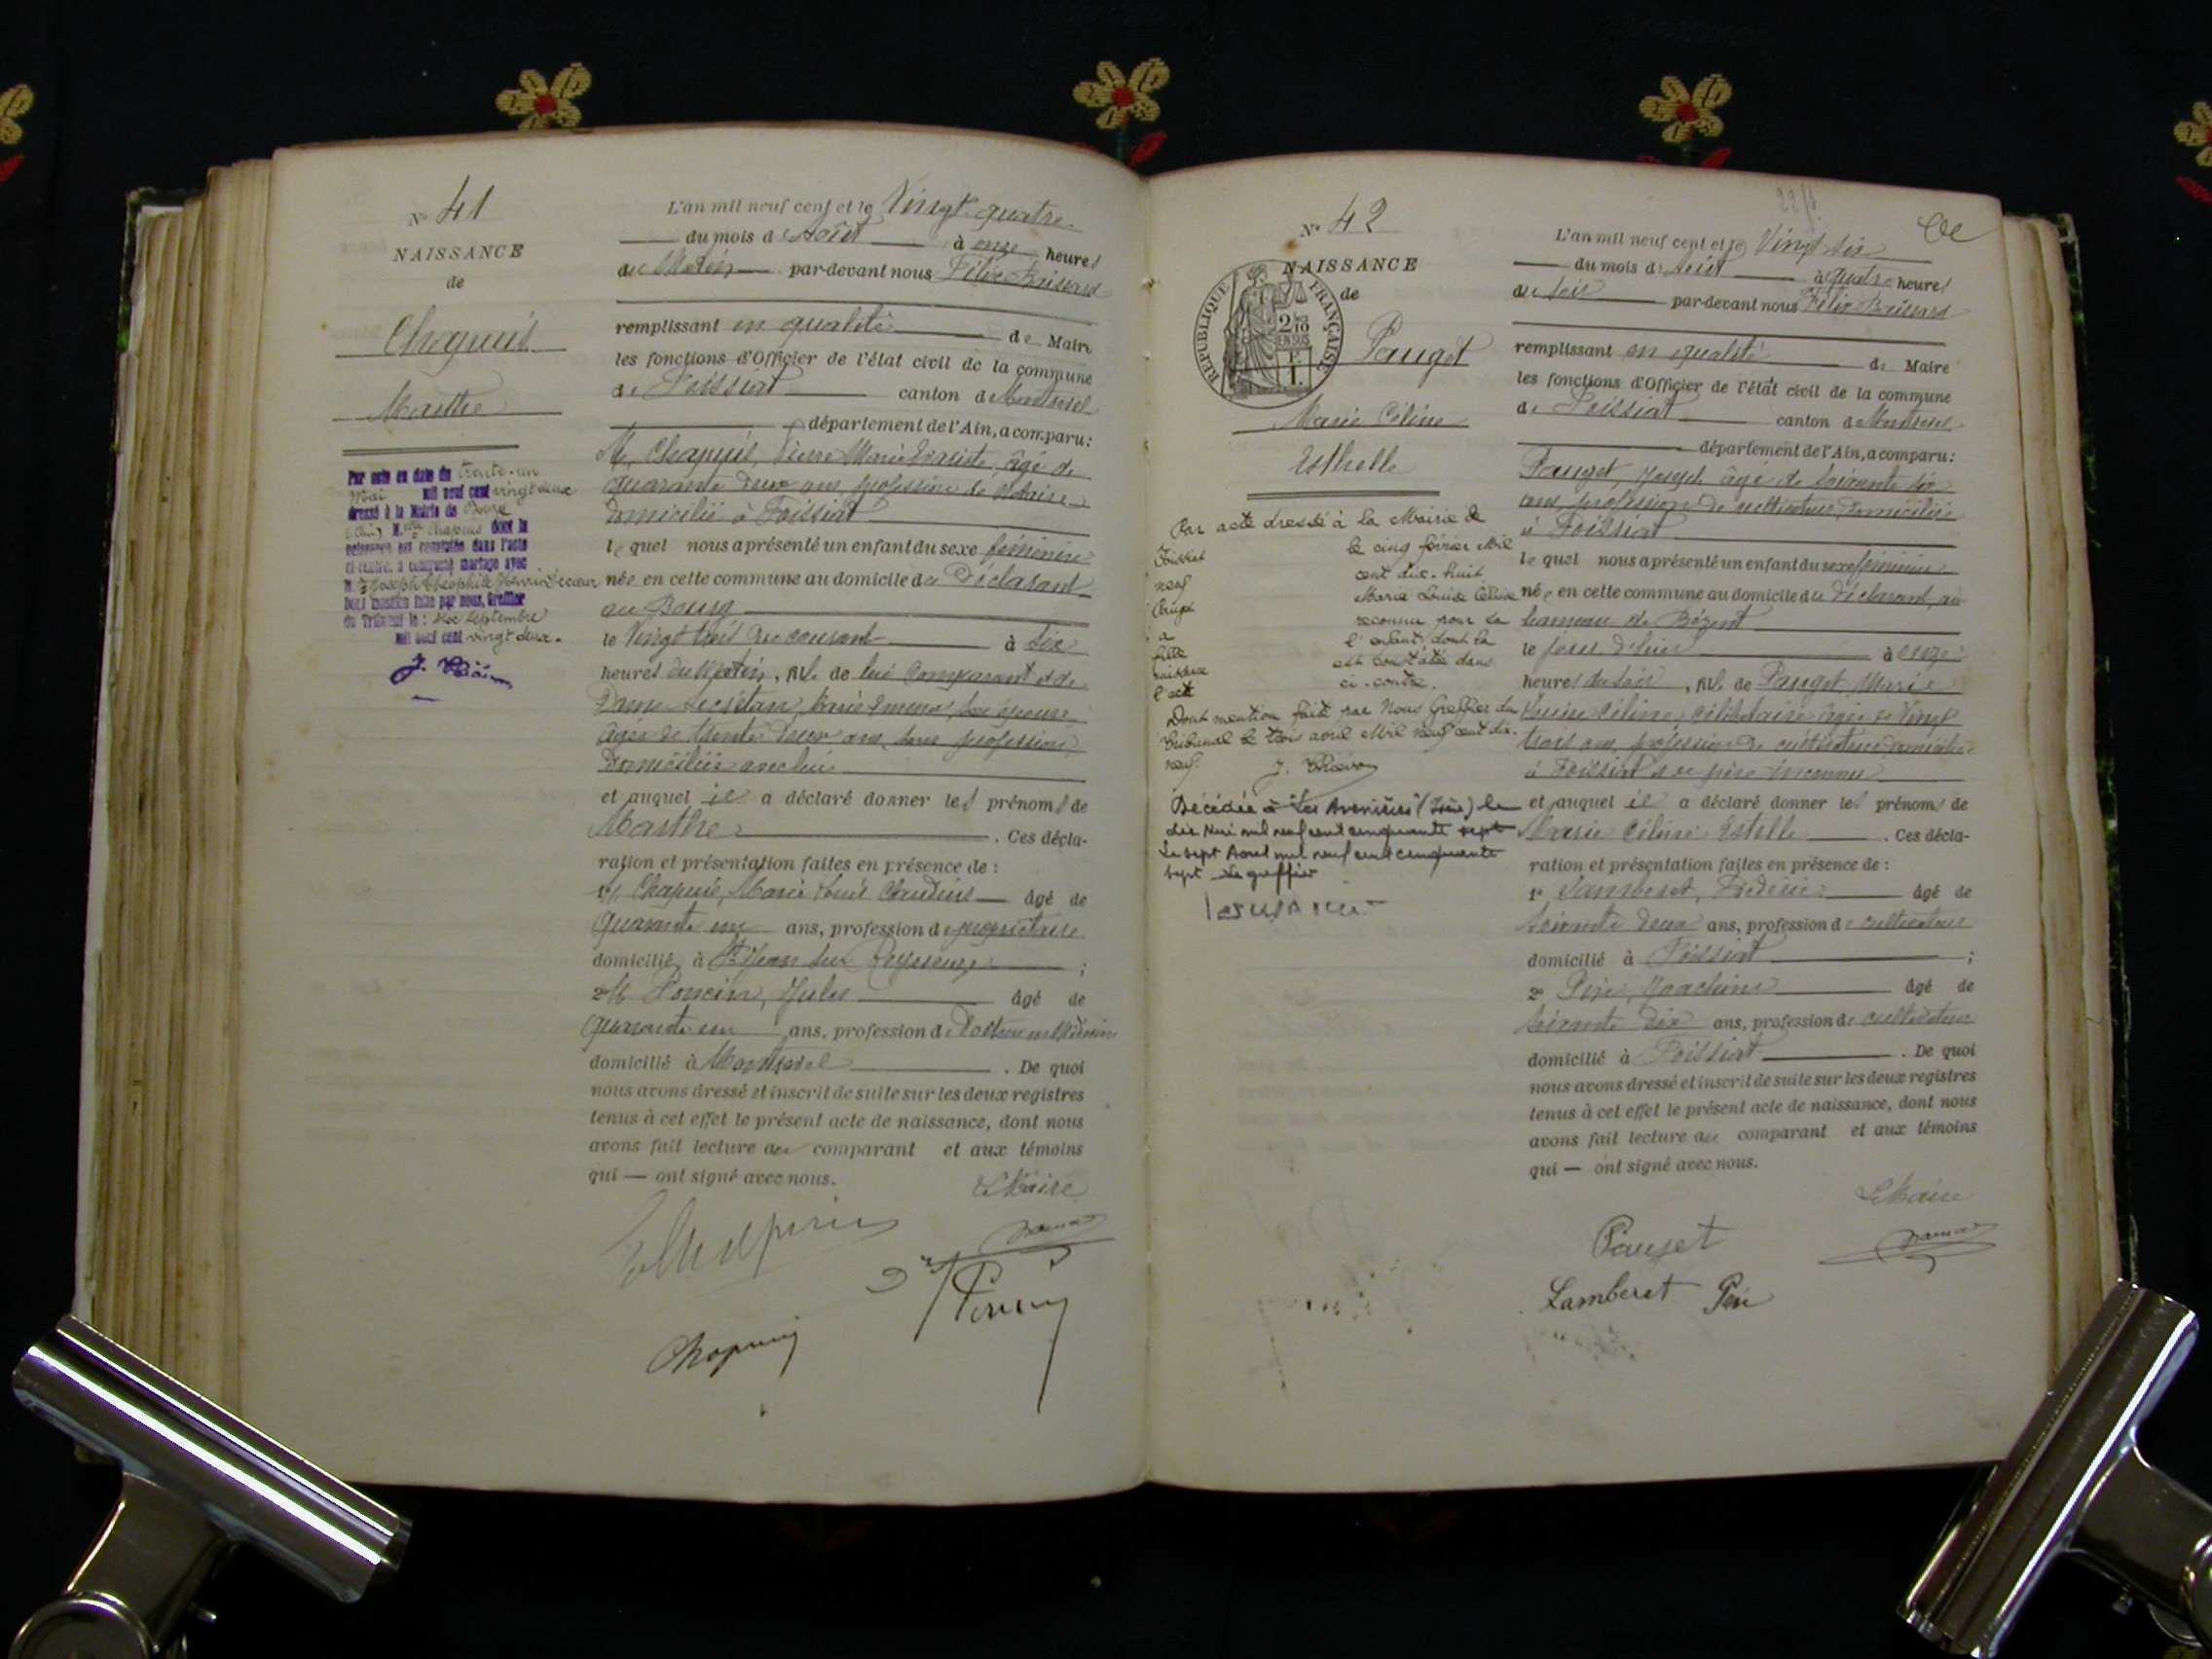 N° 41
NAISSANCE
de
Chapuis
Marthe
Par acte en date du trente-un
Mai mil neuf cent vingt deux
dressé à la Mairie de
(Ain) M.elle Chapuis dont la
naissance est constatée dans l'acte
ci-contre, a contracté mariage avec
M. Joseph Théophile
Dont mention faite par nous, Greffier
du Tribunal le: Septembre
mil neuf cent vingt deux.
L'an mil neuf cent et le Vingt quatre
du mois d'Août à onze heures
du Matin par-devant nous Félix
remplissant en qualité de Maire
les fonctions d'Officier de l'état civil de la commune
de Foissiat canton de Montrevel
département de l'Ain, a comparu:
M. Chapuis, Pierre Marie Evariste, âgé de
quarante deux ans, profession de Notaire
domicilié à Foissiat
lequel nous a présenté un enfant du sexe féminin
née en cette commune au domicile du Déclarant
au Bourg
le Vingt trois du courant à Six
heures du Matin, fille de lui Comparant et de
Dame Emma son épouse
âgée de trente deux ans, sans profession
Domiciliée avec lui
et auquel il a déclaré donner les prénoms de
Marthe . Ces décla-
ration et présentation faites en présence de :
1° M. Chapuis, Marie Claudius âgé de
Quarante un ans, profession de propriétaire
domicilié à St Jean sur Reyssouze ;
2° M. Poncin, Jules âgé de
Quarante un ans, profession de Docteur en Médecine
domicilié à Montrevel . De quoi
nous avons dressé et inscrit de suite sur les deux registres
tenus à cet effet le présent acte de naissance, dont nous
avons fait lecture au comparant et aux témoins
qui — ont signé avec nous.
Le Maire
Chapuis
Dr J Poncin
Chapuis
N° 42
NAISSANCE
de
RÉPUBLIQUE FRANÇAISE
2/10 EN SUS
Pauget
Marie Céline
Esthelle
Par acte dressé à la Mairie de
Foissiat le cinq février Mil
neuf cent dix-huit
Marie Louise Céline
a reconnu pour sa
fille l'enfant dont la
naissance est constatée dans
l'acte ci-contre.
Dont mention faite par Nous Greffier du
Tribunal le trois avril Mil neuf cent dix-
neuf.
Décédée à "Les Avenières" (Isère) le
dix Mai mil neuf cent cinquante sept
Le sept Aout mil neuf cent cinquante
sept Le greffier
L'an mil neuf cent et le Vingt six
du mois d'Août à quatre heures
du soir par-devant nous Félix
remplissant en qualité de Maire
les fonctions d'Officier de l'état civil de la commune
de Foissiat canton de Montrevel
département de l'Ain, a comparu:
Pauget, Joseph âgé de soixante six
ans, profession de cultivateur, domicilié
à Foissiat
lequel nous a présenté un enfant du sexe féminin
née en cette commune au domicile du déclarant, au
hameau de
le jour d'hier à onze
heures du soir, fille de Pauget, Marie
Louise Céline, célibataire âgée de Vingt
trois ans, profession de cultivateur domiciliée
à Foissiat et de père inconnu
et auquel il a déclaré donner les prénoms de
Marie Céline Estelle . Ces décla-
ration et présentation faites en présence de :
1° Lamberet, Frédéric âgé de
soixante deux ans, profession de cultivateur
domicilié à Foissiat ;
2° Joachim âgé de
soixante dix ans, profession de cultivateur
domicilié à Foissiat . De quoi
nous avons dressé et inscrit de suite sur les deux registres
tenus à cet effet le présent acte de naissance, dont nous
avons fait lecture au comparant et aux témoins
qui — ont signé avec nous.
Le Maire
Pauget
Lamberet